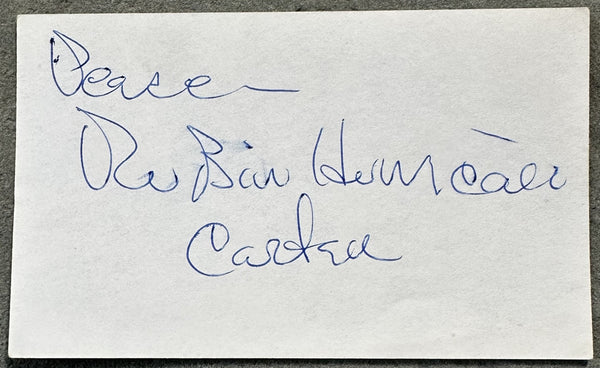 Peace
Rubin Hurricane
Carter